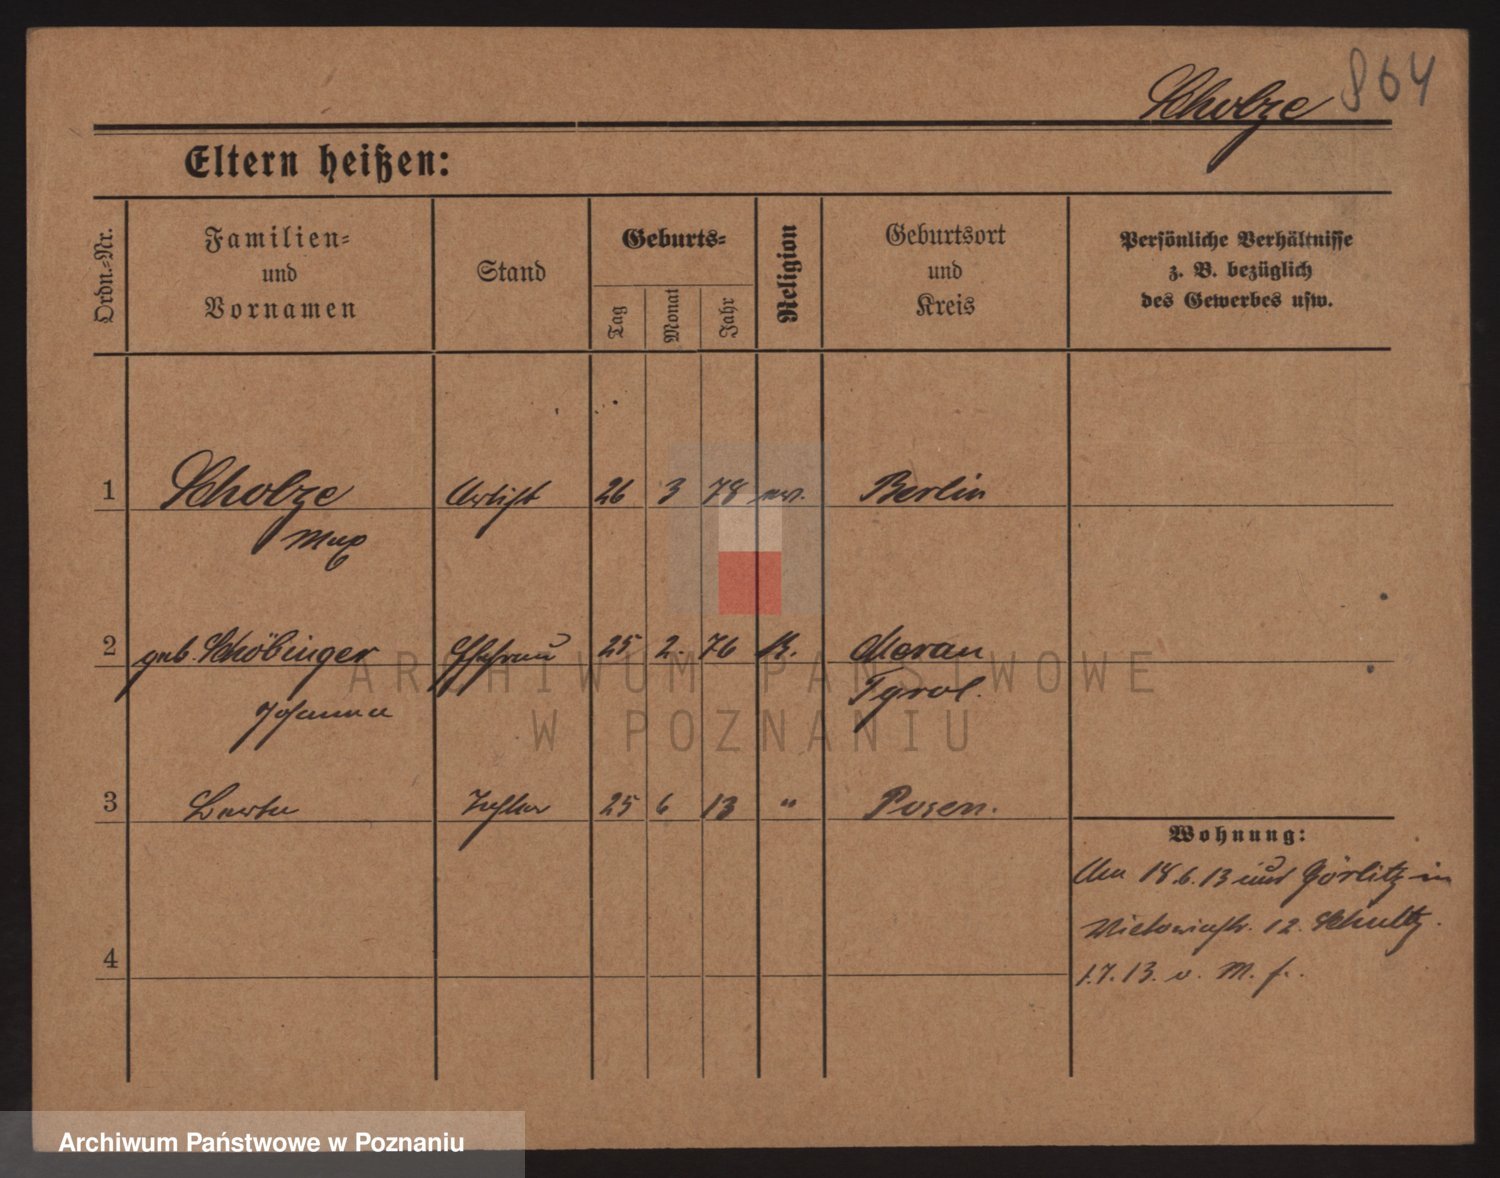 Scholze 864
Eltern heißen:
Ordn.-Nr.
Familien-
und
Vornamen
Stand
Geburts-
Tag
Monat
Jahr
Religion
Geburtsort
und
Kreis
Persönliche Verhältnisse
z. B. bezüglich
des Gewerbes usw.
1 Scholze Artist 26 3 78 ev. Berlin
Max
2 geb. Schöbinger Ehefrau 25 2. 76 K. Meran
Johanna Tyrol.
3 Berta Tochter 25 6 13 " Posen.
Wohnung:
Am 18.6.13 aus Görlitz in
Victoriastr. 12. Schultz.
4
1.7.13. v. M. f.
ARCHIWUM PAŃSTWOWE
W POZNANIU
Archiwum Państwowe w Poznaniu